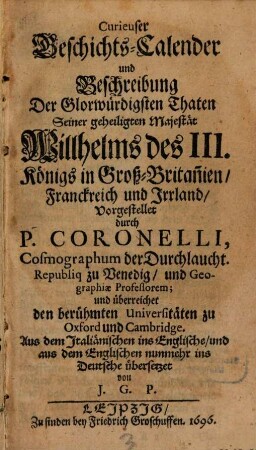 Curieuser
Geschichts-Calender
und
Beschreibung
Der Glorwürdigsten Thaten
Seiner geheiligten Majestät
Willhelms des III.
Königs in Groß-Britañien/
Franckreich und Irrland/
Vorgestellet
durch
P. CORONELLI,
Cosmographum der Durchlaucht.
Republiq zu Venedig/ und Geo-
graphiæ Professorem;
und überreichet
den berühmten Universitäten zu
Oxford und Cambridge.
Aus dem Italiänischen ins Englische/und
aus dem Englischen nunmehr ins
Deutsche übersetzet
von
J. G. P.
LEIPZIG/
Zu finden bey Friedrich Groschuffen. 1696.
3